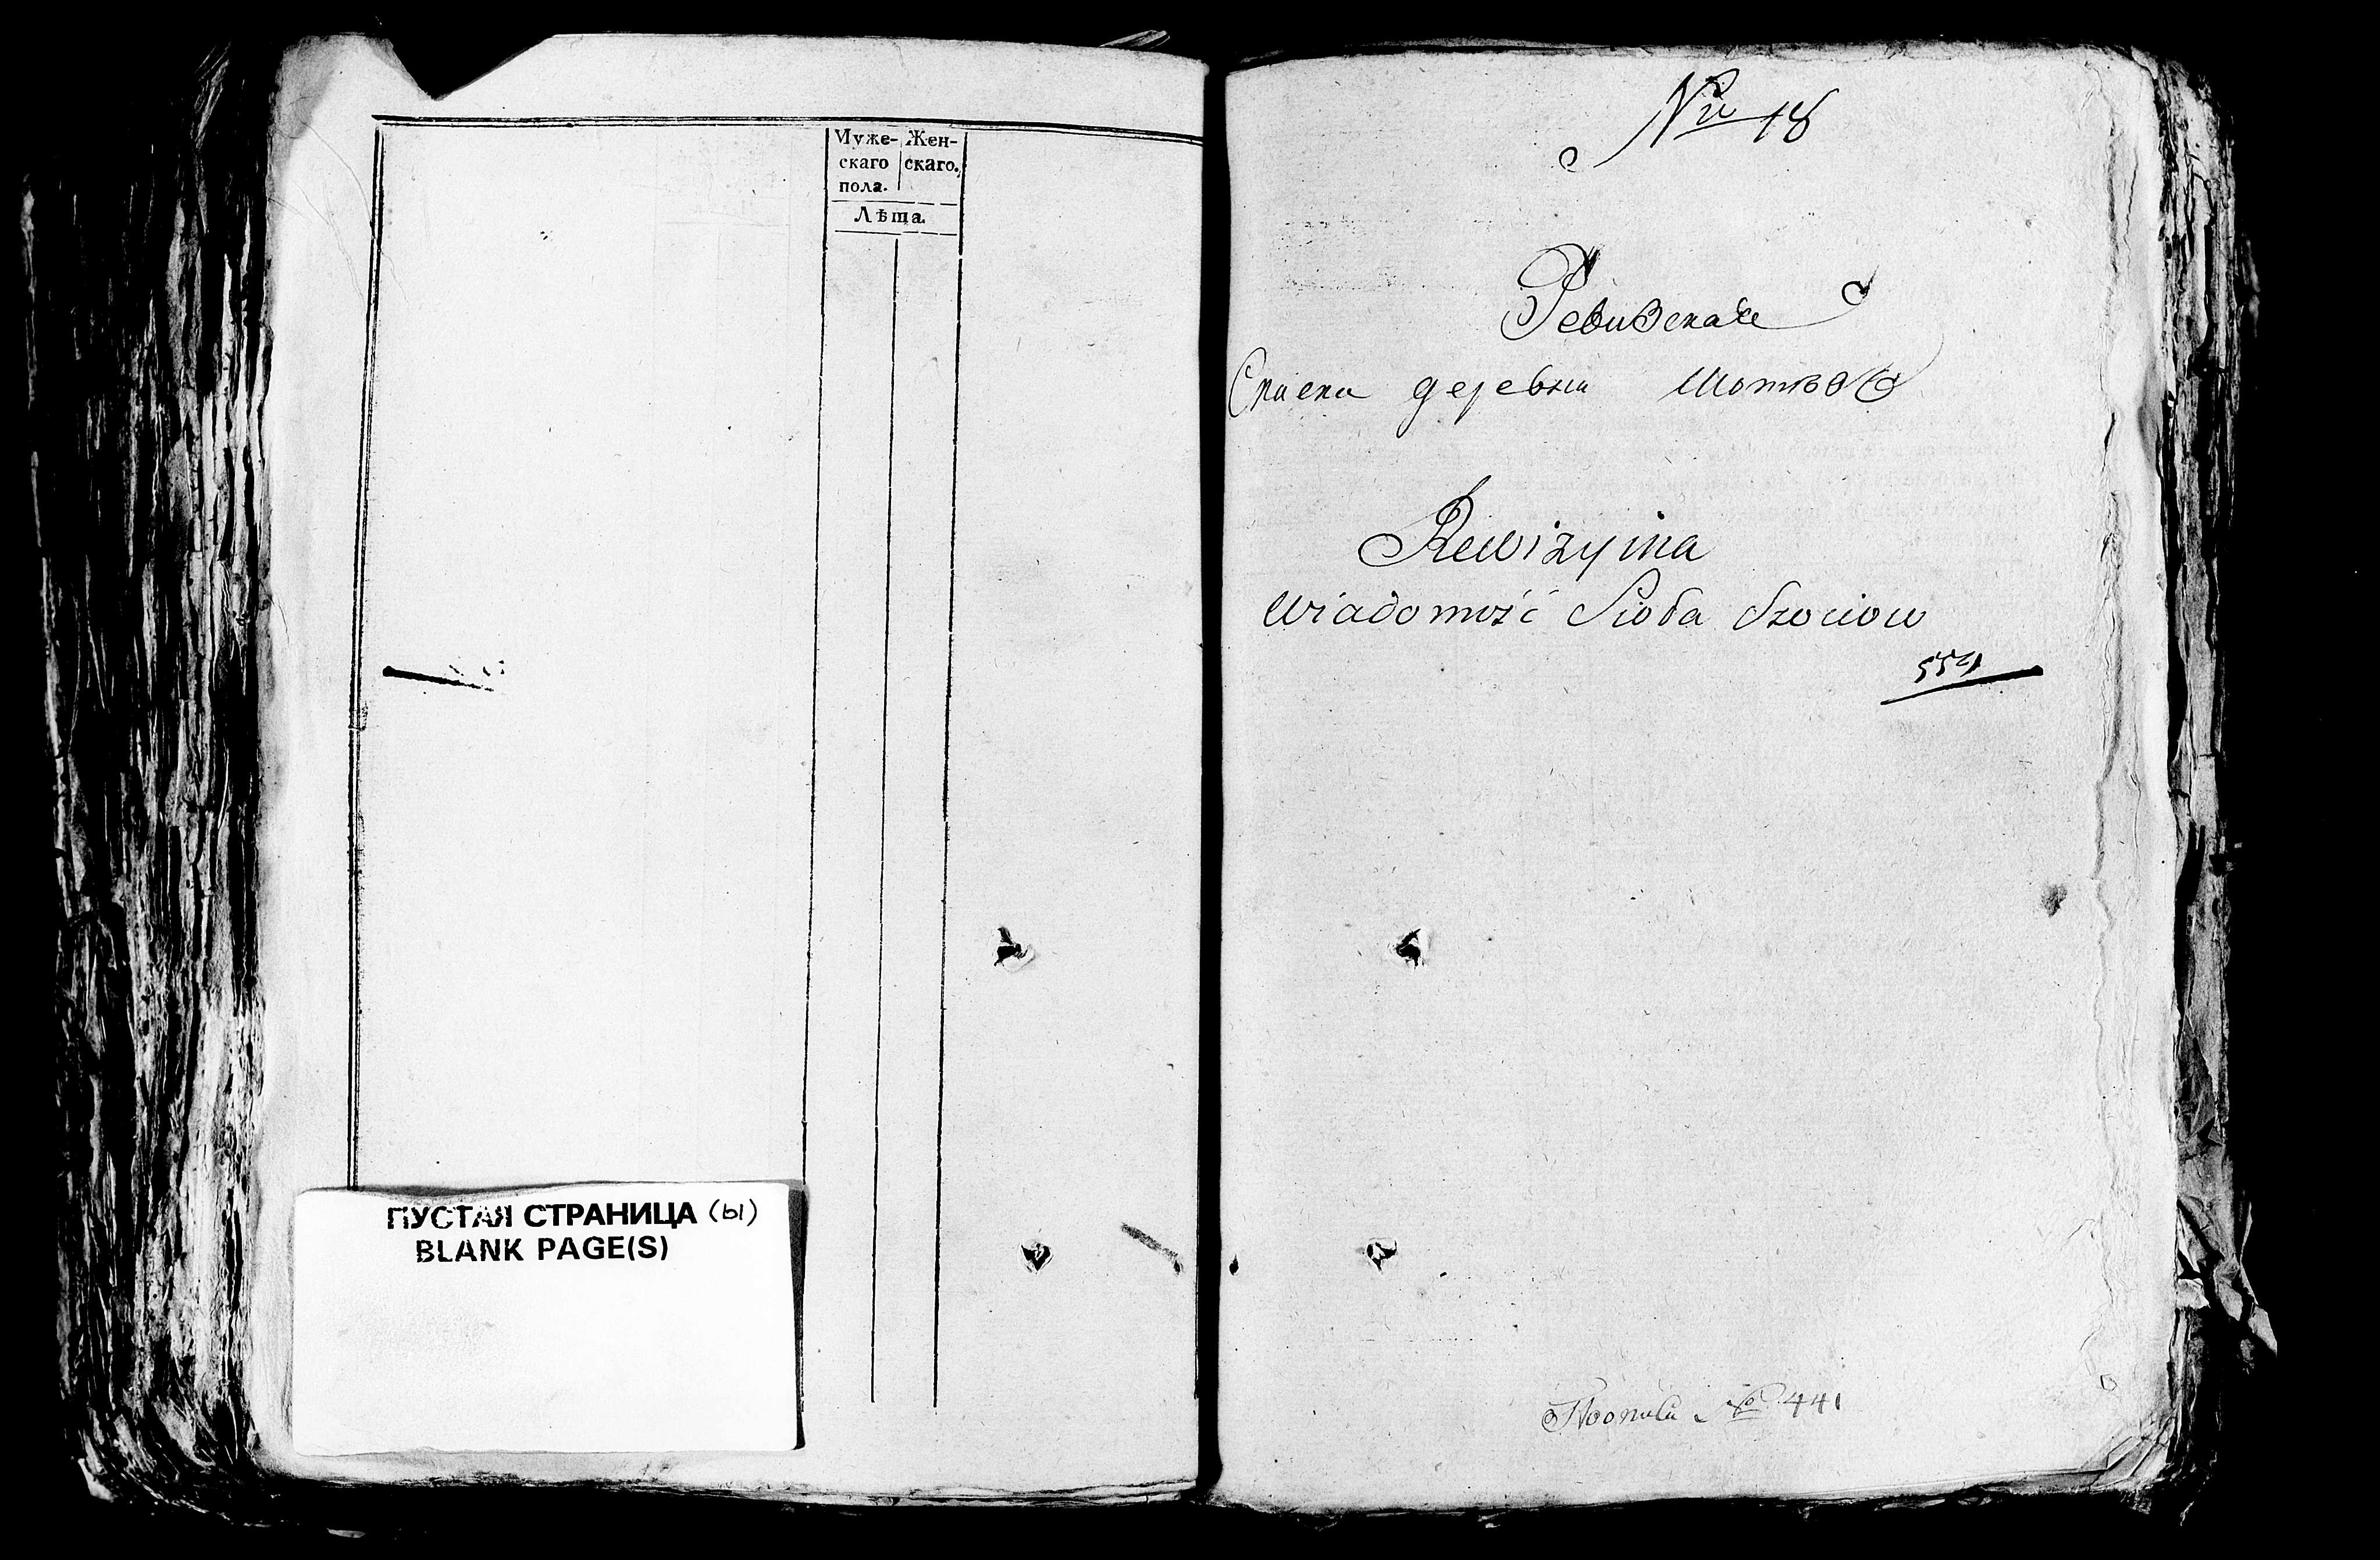 Муже- Жен-
скаго скаго.
пола.
Лѣта.
ПУСТАЯ СТРАНИЦА (ы)
BLANK PAGE(S)
№ 18
Ревизская
Скаска деревни Шотов
Rewizyina
Wiadomość Sioła Szotow
554
№ 441